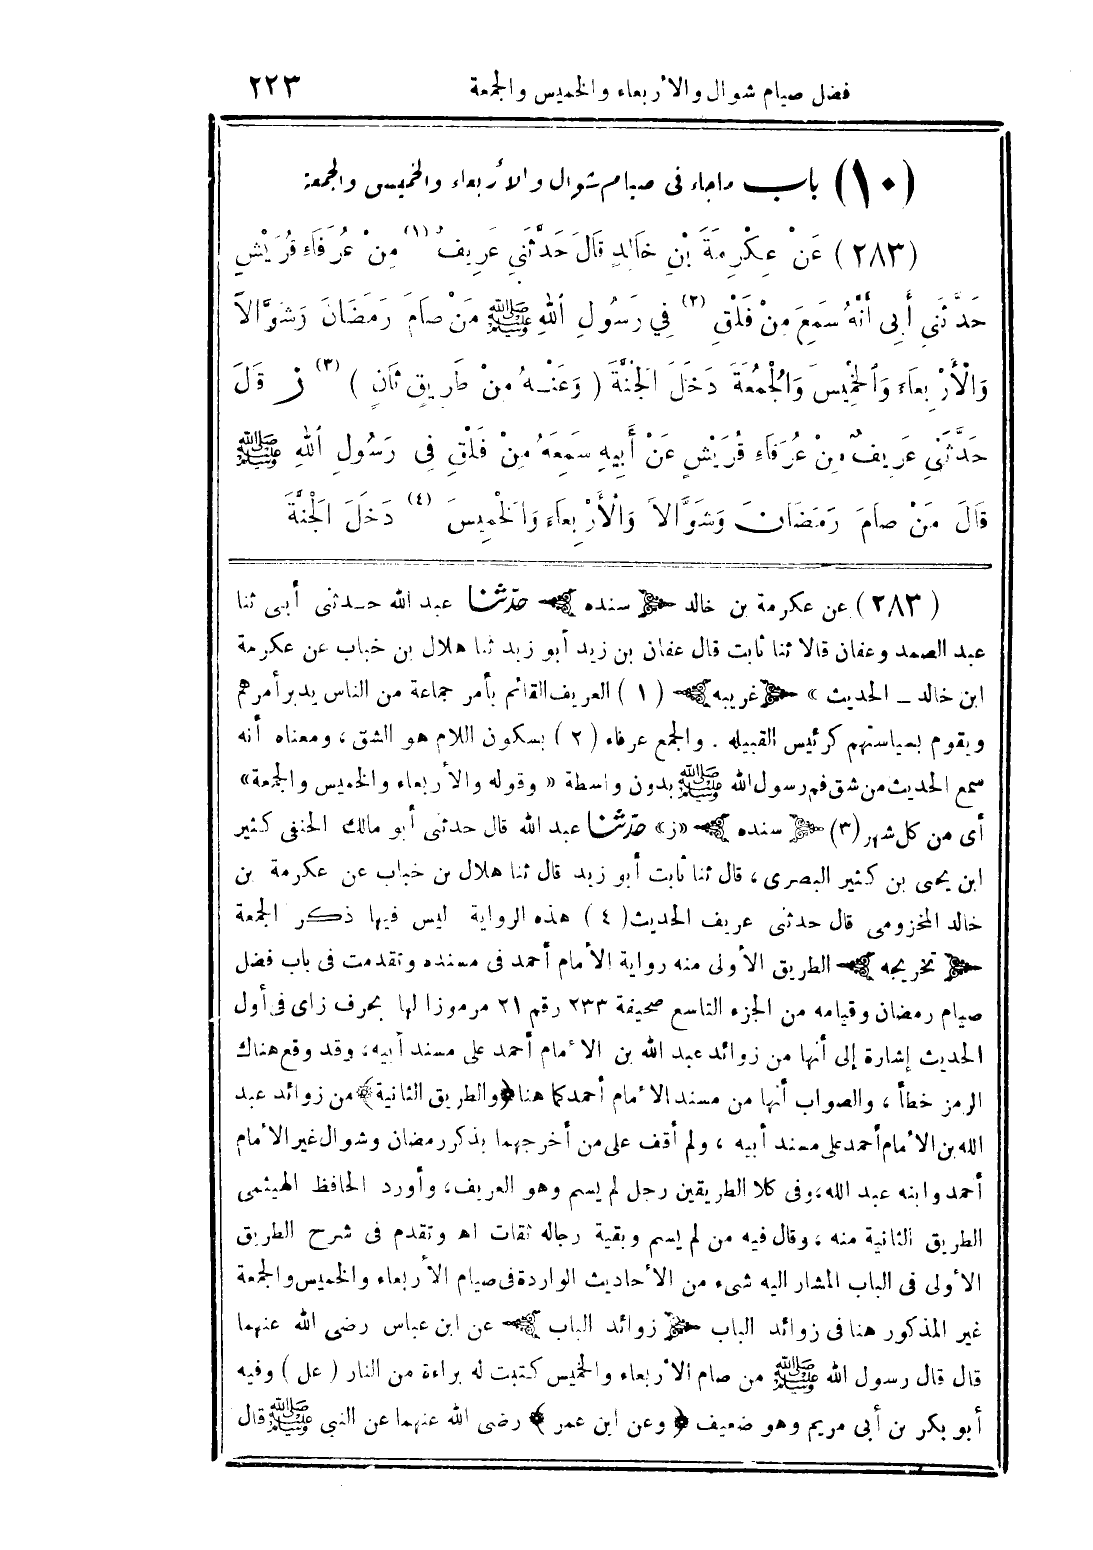 فضل صيام شوال والأربعاء والخميس والجمعة ٢٢٣
(١٠) باب ماجاء فى صيام شوال والأربعاء والخميس والجمعة
(٢٨٣) عَنْ عِكْرِمَةَ بْنِ خَالِدٍ قَالَ حَدَّثَنِي عَرِيفٌ (١) مِنْ عُرَفَاءِ قُرَيْشٍ
حَدَّثَنِي أَبِي أَنَّهُ سَمِعَ مِنْ فَلْقِ (٢) فِي رَسُولِ اللهِ ﷺ مَنْ صَامَ رَمَضَانَ وَشَوَّالاً
وَالْأَرْبِعَاءَ وَالْخَمِيسَ وَالْجُمُعَةَ دَخَلَ الْجَنَّةَ (وَعَنْهُ مِنْ طَرِيقٍ ثَانٍ) (٣) ز قَالَ
حَدَّثَنِي عَرِيفٌ مِنْ عُرَفَاءِ قُرَيْشٍ عَنْ أَبِيهِ سَمِعَهُ مِنْ فَلْقِ فِى رَسُولِ اللهِ ﷺ
قَالَ مَنْ صَامَ رَمَضَانَ وَشَوَّالاً وَالْأَرْبِعَاءَ وَالْخَمِيسَ (٤) دَخَلَ الْجَنَّةَ
(٢٨٣) عن عكرمة بن خالد ﴿سنده﴾ حدّثنا عبد الله حدثنى أبى ثنا
عبد الصمد وعفان قالا ثنا ثابت قال عفان بن زيد أبو زيد ثنا هلال بن خباب عن عكرمة
ابن خالد ــ الحديث » ﴿غريبه﴾ (١) العريف القائم بأمر جماعة من الناس يدبر أمرهم
ويقوم بسياستهم كرئيس القبيله . والجمع عرفاء (٢) بسكون اللام هو الشق، ومعناه أنه
سمع الحديث من شق فم رسول الله ﷺ بدون واسطة « وقوله والأربعاء والخميس والجمعة»
أى من كل شهر (٣) ﴿سنده﴾ «ز» حدّثنا عبد الله قال حدثنى أبو مالك الحنفى كثير
ابن يحيى بن كثير البصرى، قال ثنا ثابت أبو زيد قال ثنا هلال بن خباب عن عكرمة بن
خالد المخزومى قال حدثنى عريف الحديث (٤) هذه الرواية ليس فيها ذكر الجمعة
﴿تخريجه﴾ الطريق الأولى منه رواية الأمام أحمد فى مسنده وتقدمت فى باب فضل
صيام رمضان وقيامه من الجزء التاسع صحيفة ٢٣٣ رقم ٢١ مرموزا لها بحرف زاى فى أول
الحديث إشارة إلى أنها من زوائد عبد الله بن الأمام أحمد على مسند أبيه، وقد وقع هناك
الرمز خطأ، والصواب أنها من مسند الأمام أحمد كما هنا ﴿والطريق الثانية﴾ من زوائد عبد
الله بن الأمام أحمد على مسند أبيه ، ولم أقف على من أخرجهما بذكر رمضان وشوال غير الأمام
أحمد وابنه عبد الله، وفى كلا الطريقين رجل لم يسم وهو العريف، وأورد الحافظ الهيثمى
الطريق الثانية منه ، وقال فيه من لم يسم وبقية رجاله ثقات اهـ وتقدم فى شرح الطريق
الأولى فى الباب المشار اليه شىء من الأحاديث الواردة فى صيام الأربعاء والخميس والجمعة
غير المذكور هنا فى زوائد الباب ﴿زوائد الباب﴾ عن ابن عباس رضى الله عنهما
قال قال رسول الله ﷺ من صام الأربعاء والخميس كتبت له براءة من النار (عل) وفيه
أبو بكر بن أبى مريم وهو ضعيف ﴿وعن ابن عمر﴾ رضى الله عنهما عن النبى ﷺ قال